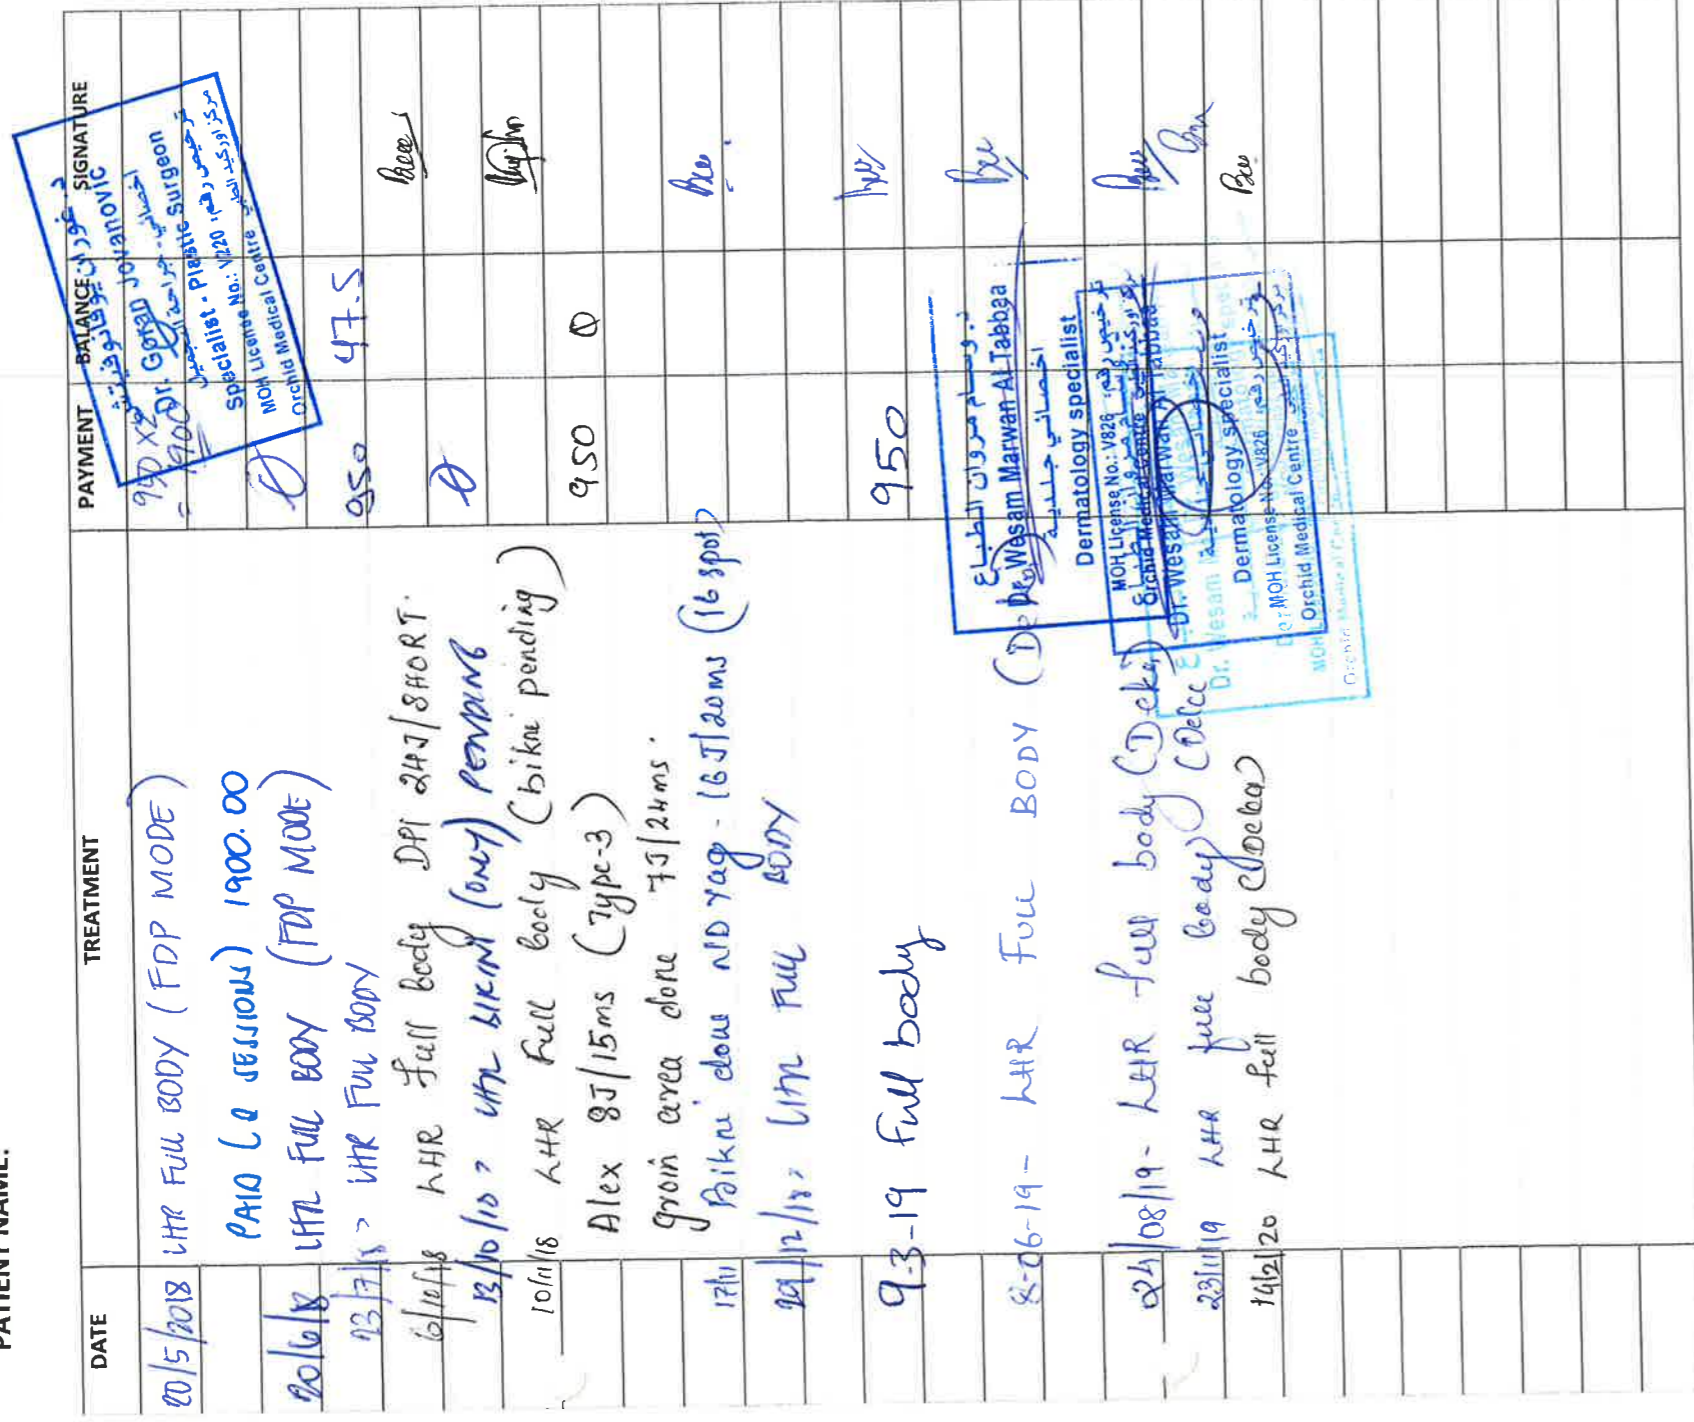 PATIENT NAME:
DATE TREATMENT PAYMENT BALANCE SIGNATURE
20/5/2018 LHR FULL BODY (FDP MODE) 950 x 2
= 1900
PAID (2 SESSIONS) 1900.00
20/6/18 LHR FULL BODY (FDP MODE) 0
23/7/18 > LHR FULL BODY 950 47.5
6/10/18 LHR full body DPI 24J/SHORT.
13/10/18 > LHR BIKINI (ONLY) PENDING 0
10/11/18 LHR Full body (bikni pending)
Alex 8J/15ms (Type-3) 950 0
groin area done 7J/24ms.
17/11 Bikni done ND Yag - 16J/20ms (16 spot)
29/12/18 > LHR FULL BODY
9-3-19 Full body 950
8-06-19 - LHR FULL BODY
24/08/19 - LHR full body (Deka)
23/11/19 LHR full body
14/2/20 LHR full body
د. غوران يوفانوفيتش
Dr. Goran Jovanovic
اخصائي - جراحة التجميل
Specialist - Plastic Surgeon
ترخيص رقم: V220
MOH License No.: V220
مركز اوركيد الطبي
Orchid Medical Centre
د. وسام مروان الطباع
Dr. Wesam Marwan Al Tabbaa
اخصائي جلدية
Dermatology specialist
ترخيص رقم: V826
MOH License No.: V826
Orchid Medical Centre
Dr. Wesam Marwan Al Tabbaa
Dermatology specialist
ترخيص رقم: V826
MOH License No.: V826
Orchid Medical Centre
Dr. Wesam
Orchid Medical